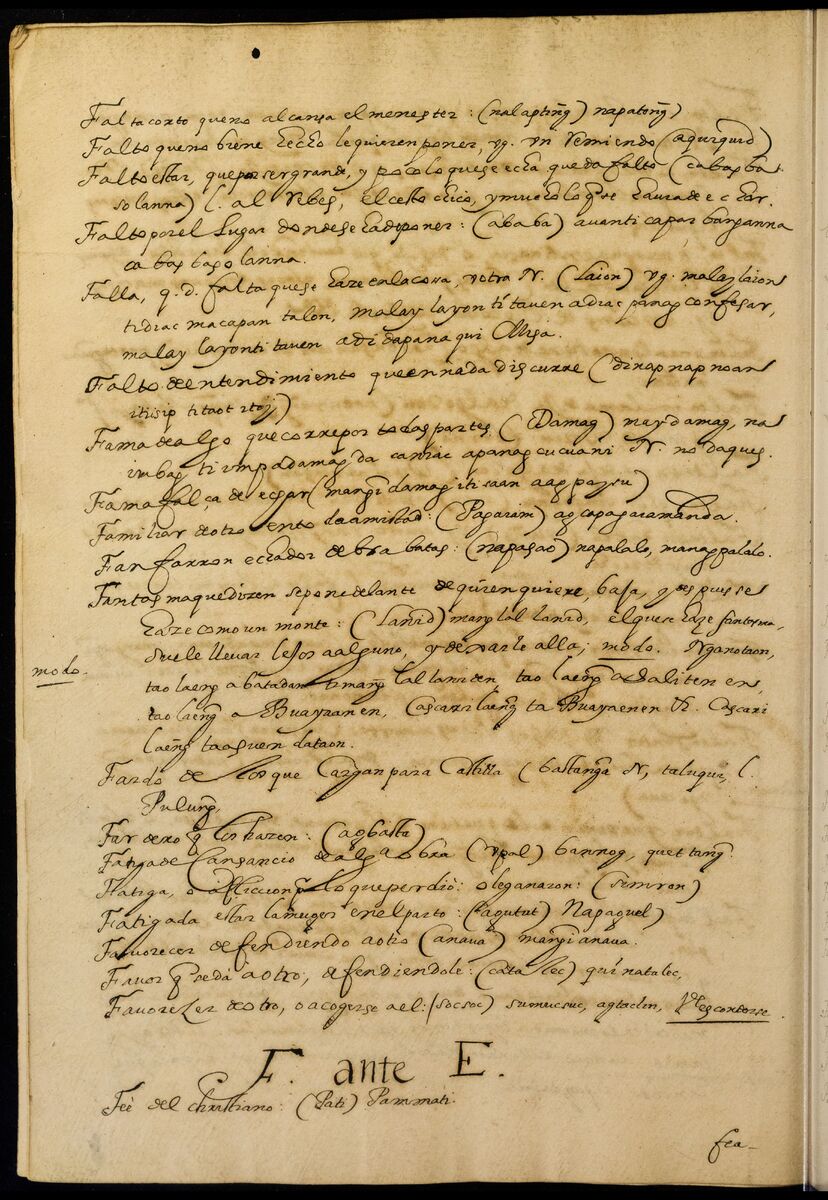 Falta corto que no alcansa el menester: (nalapting̃) napatong̃)
Falto que no biene hecho le quieren poner, vg. vn Remiendo (aguiguid)
Falto estar, que por ser grande, y poco lo que se echa queda falto (cabaxba
solanna) l. al rebes, el cesto chico, y mucho lo q̃ se haura de echar.
Falto por el lugar donde se ha de poner: (ababa) auanti capar bang̃anna
ca bas bas o lanna.
Falla, q. d. falta que se haze en la cosa, v otra N. (Laion) vg. malaylaion
ti diac macapan talon, malay layon ti tauen adiac pimag confesar,
malay layon ti tauen adi dapana qui Misa.
Falto de entendimiento que en nada discurre (dinap nap noan
itisip ti taot itoy)
Fama de algo que corre por todas partes (Damag) naydamag, na
imbag ti impadamag da caniac apanag cucuani N. no daques.
Fama falça de echar (mang̃i damag iti saan a agpaysu)
Familiar de otro en to la amistad: (Pagarām) ag ca pagaramanda.
Fanfarron echador de brabatas: (napasao) napalalo, manag palalo.
Fantasma que dizen se pone delante de quien quiere, baja, y despues se
haze como un monte: (Lanīd) mang̃lal lanīd, el que haze fantasma,
suele lleuar lejos a alguno, y dexarle alla; modo. Ng̃anotaon,
modo.
tao laeng̃ a batadan ti mang̃ lal laniden, tao laeng̃ a daliten en,
tao laeng̃ a Buayaanen, Cascari laeng̃ ta Buayaenen &. Cascari
laeng̃ ta asuen dataon.
Fardo de los que cargan para Castilla (bastang̃a N, talugui, l.
Pulung̃,
Fardero q̃ los hazen: (agbasta)
Fatiga de Cansancio de alg̃a obra (vpal) bannog, quettang̃.
Fatiga, o affliccion pʳ lo que perdiò: o le ganaron: (semron)
Fatigada estar la muger en el parto: (agutut) Napaguel)
Favorecer defendiendo a otro (anaua) mang̃i anaua.
Favor q̃ se dà a otro, defendiendole: (catalec) quinatalec,
Favorezer de otro, o acogerse a el: (socsoc) sumucsuc, agtaclin, Vᵈᵉ esconderse
F. ante E.
Feè del christiano: (Pati) Pammati.
fea-